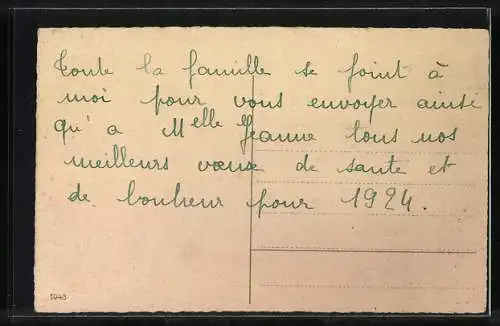 Toute la famille se joint à
moi pour vous envoyer ainsi
qu'a Melle Jeanne tous nos
meilleurs vœux de sante et
de bonheur pour 1924.
1943